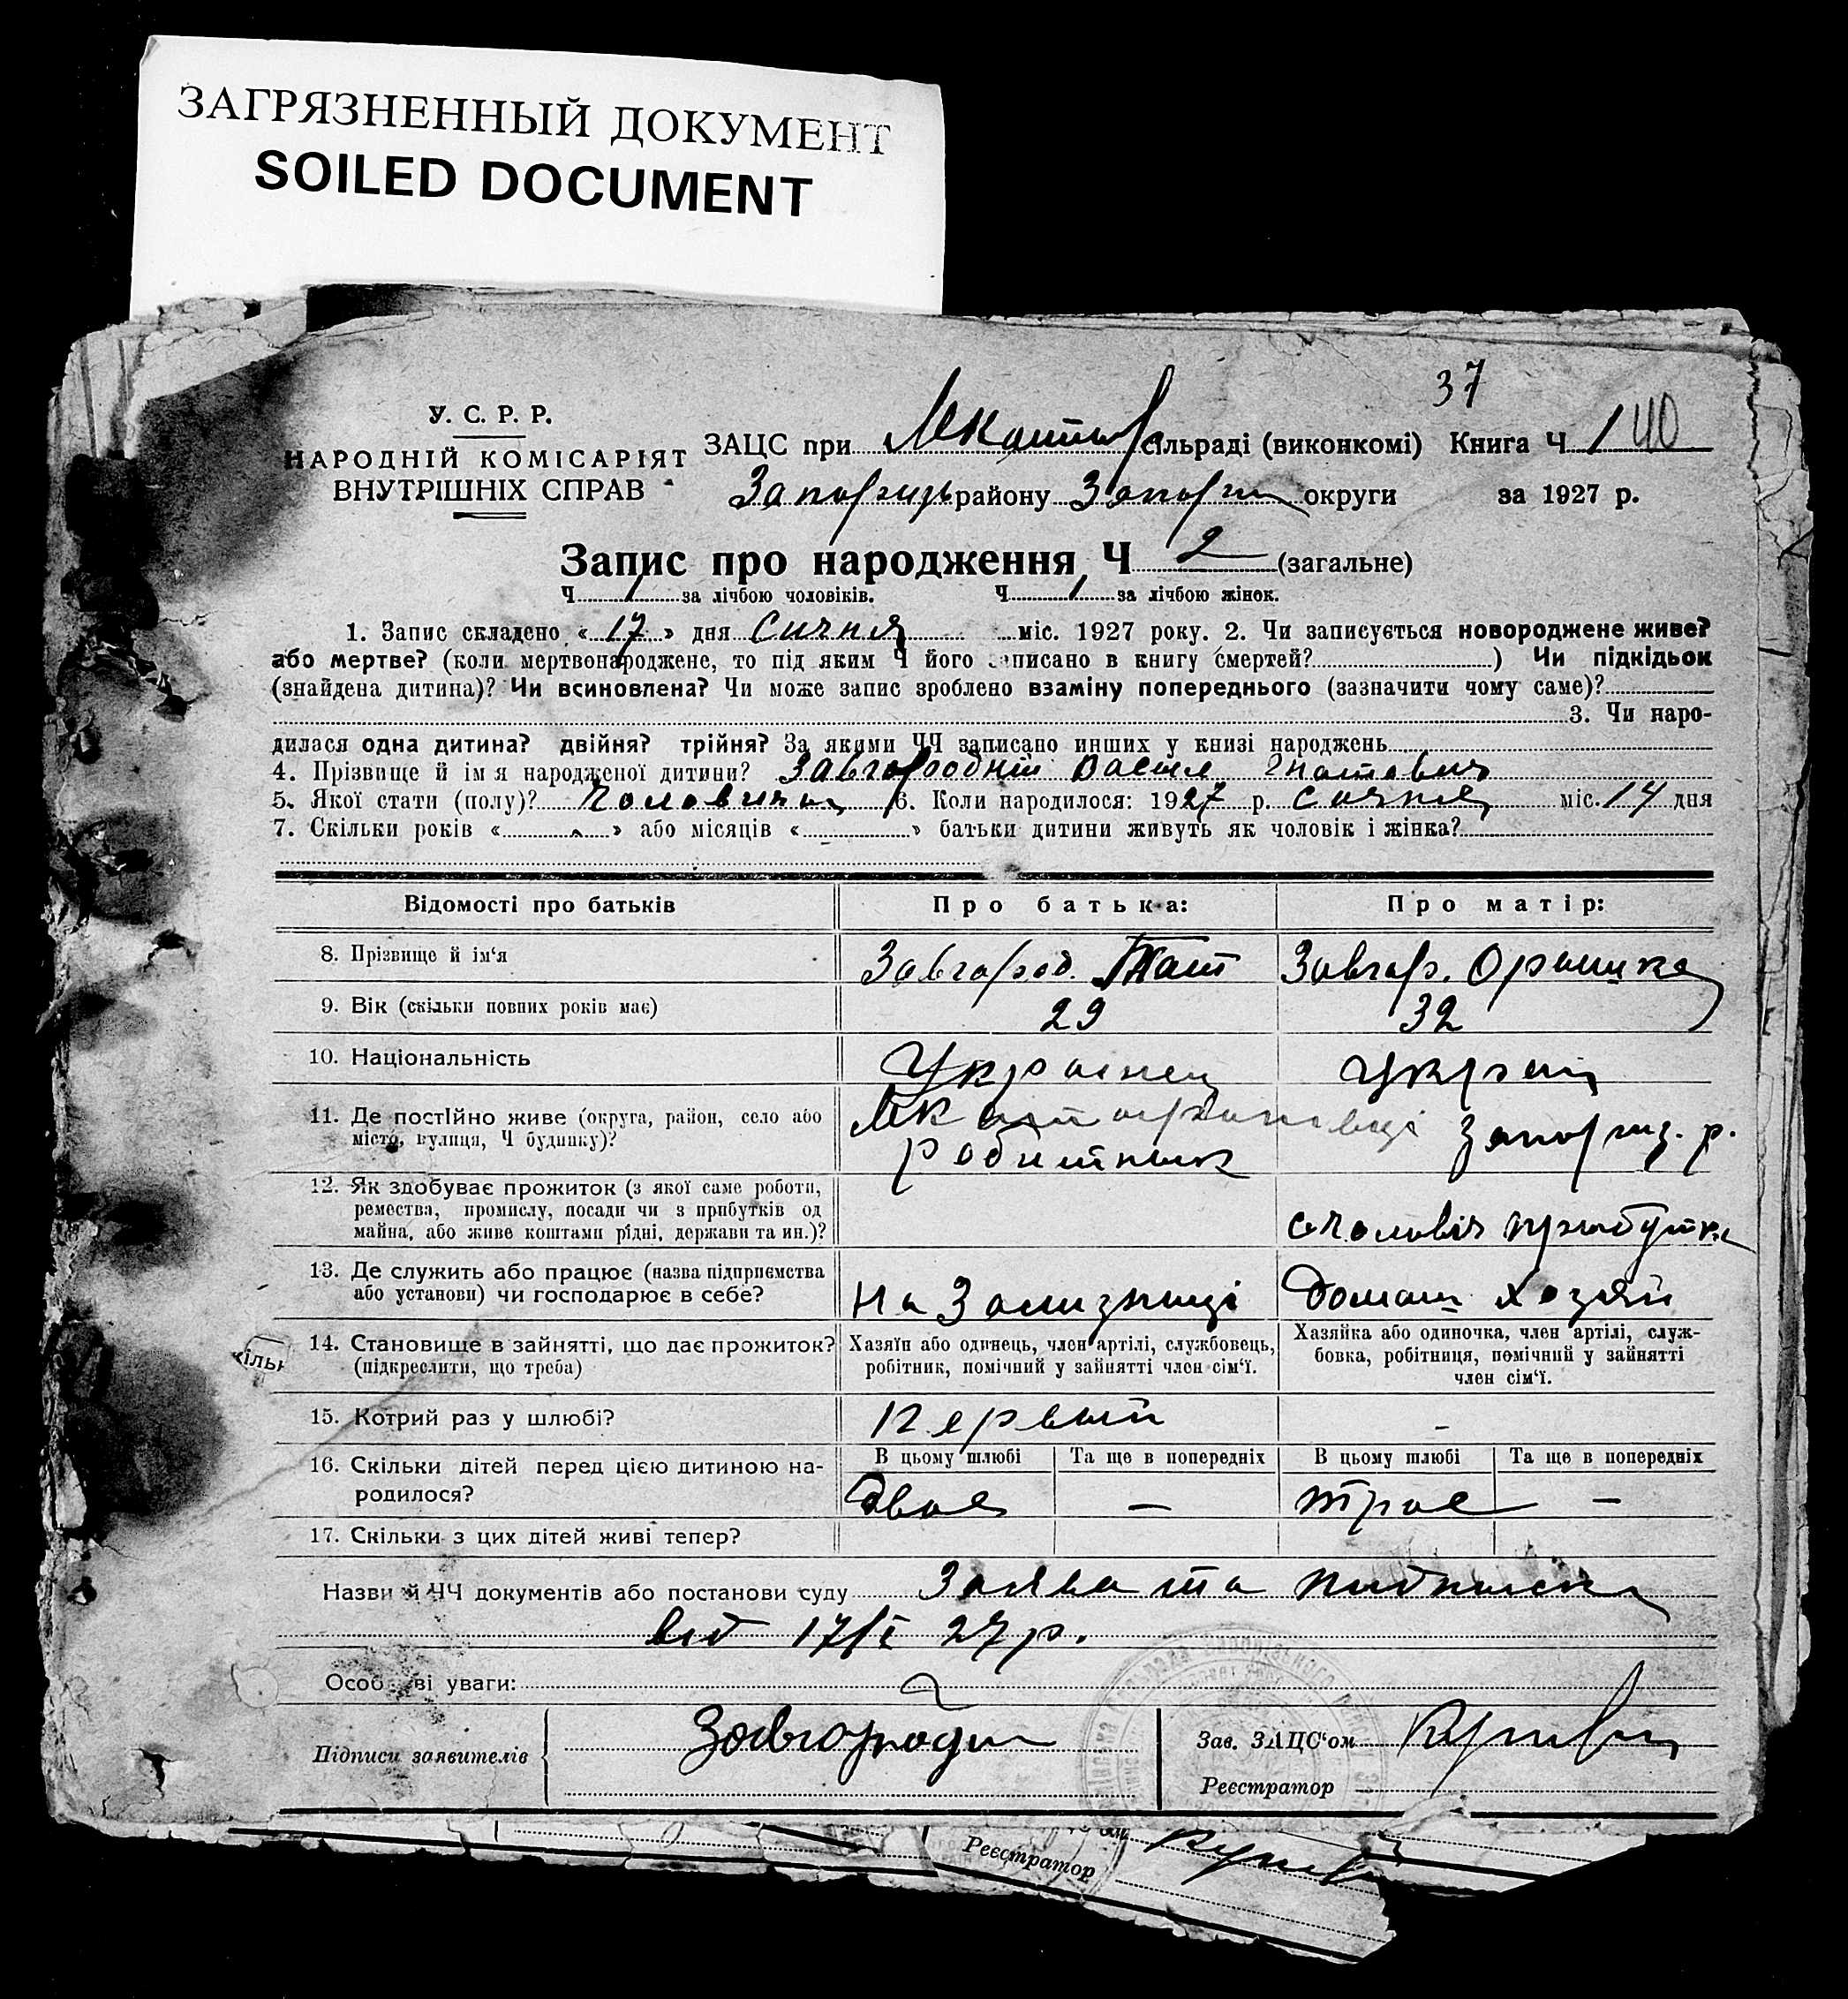 ЗАГРЯЗНЕННЫЙ ДОКУМЕНТ
SOILED DOCUMENT
37
У. С. Р. Р.
НАРОДНІЙ КОМІСАРІЯТ
ВНУТРІШНІХ СПРАВ
ЗАЦС при сільраді (виконкомі) Книга Ч 1 40
району округи за 1927 р.
Запис про народження Ч 2 (загальне)
Ч 1 за лічбою чоловіків. Ч 1 за лічбою жінок.
1. Запис складено « 17 » дня Січня міс. 1927 року. 2. Чи записується новороджене живе?
або мертве? (коли мертвонароджене, то під яким Ч його записано в книгу смертей? ) Чи підкідьок
(знайдена дитина)? Чи всиновлена? Чи може запис зроблено взаміну попереднього (зазначити чому саме)?
3. Чи наро-
дилася одна дитина? двійня? трійня? За якими ЧЧ записано инших у книзі народжень
4. Прізвище й імя народженої дитини? Завгородній Василь Гнатович
5. Якої стати (полу)? 6. Коли народилося: 1927 р. січня міс. 14 дня
7. Скільки років « » або місяців « » батьки дитини живуть як чоловік і жінка?
Відомості про батьків Про батька: Про матір:
8. Прізвище й ім'я Завгород. Гнат Завгор.
9. Вік (скільки повних років має) 29 32
10. Національність Українец
11. Де постійно живе (округа, район, село або
місто, вулиця, Ч будинку)?
робитнык
12. Як здобуває прожиток (з якої саме роботи,
ремества, промислу, посади чи з прибутків од
майна, або живе коштами рідні, держави та ин.)?
13. Де служить або працює (назва підприємства
або установи) чи господарює в себе? на Зализници Домаш хозяй
кільк
14. Становище в зайнятті, що дає прожиток? Хазяїн або одинець, член артілі, службовець, Хазяйка або одиночка, член артілі, служ-
(підкреслити, що треба) робітник, помічний у зайнятті член сім'ї. бовка, робітниця, помічний у зайнятті
член сім'ї.
15. Котрий раз у шлюбі? Первый -
16. Скільки дітей перед цією дитиною на- В цьому шлюбі Та ще в попередніх В цьому шлюбі Та ще в попередніх
родилося? Двое — трое —
17. Скільки з цих дітей живі тепер?
Назви й ЧЧ документів або постанови суду Заява та підписка
від 17/I 27 р.
Особливі уваги:
Підписи заявителів Зав. ЗАЦС'ом
Реєстратор
Реєстратор